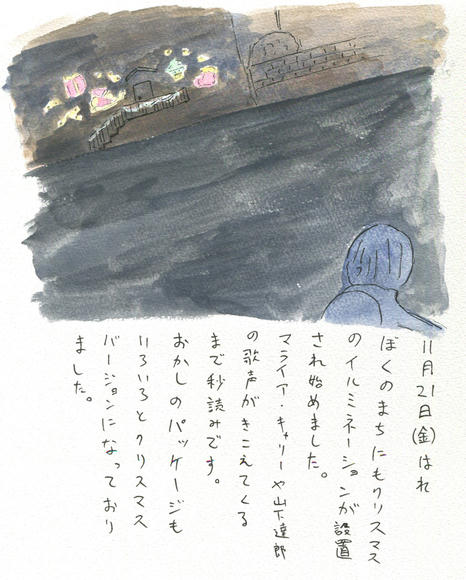 11月21日(金)はれ
ぼくのまちにもクリスマス
のイルミネーションが設置
され始めました。
マライア・キャリーや山下達郎
の歌声がきこえてくる
まで秒読みです。
おかしのパッケージも
いろいろとクリスマス
バージョンになっており
ました。